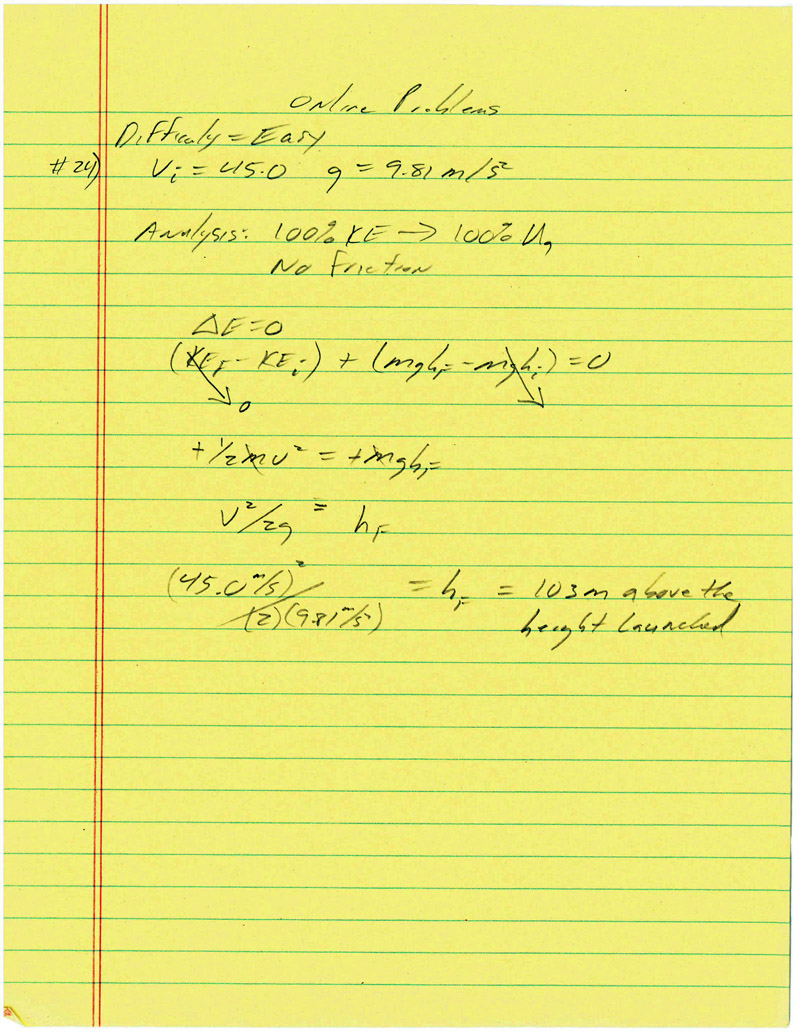 Online Problems
Difficuly = Easy
#24) Vi = 45.0 g = 9.81 m/s²
Analysis: 100% KE → 100% Ug
No Friction
ΔE = 0
(KEF - KEi) + (mghF - mghi) = 0
0
+1/2mv² = +mghF
V²/2g = hF
(45.0 m/s)²/(2)(9.81 m/s²) = hF = 103m above the
height Launched